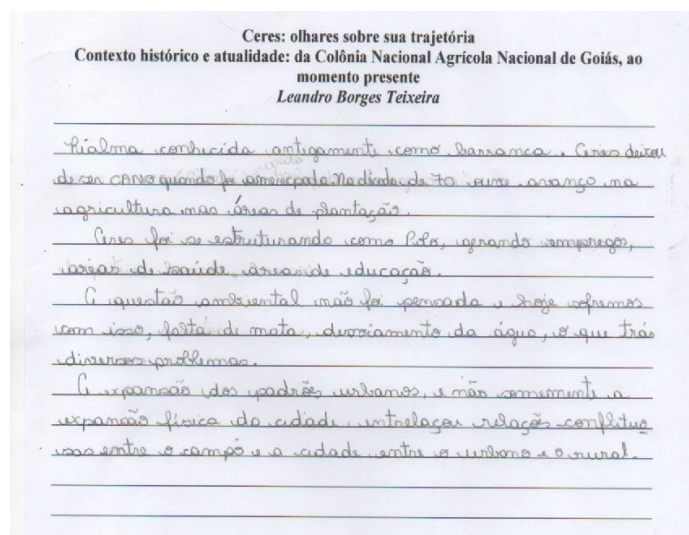 Ceres: olhares sobre sua trajetória
Contexto histórico e atualidade: da Colônia Nacional Agrícola Nacional de Goiás, ao
momento presente
Leandro Borges Teixeira
Rialma conhecida antigamente como barranca. Ceres deixou
de ser CANG quando foi emancipada. Na década de 70 ouve avanço na
agricultura nas áreas de plantação.
Ceres foi se estruturando como Polo, gerando empregos,
areas de saúde, areas de educação.
A questão ambiental não foi pensada e hoje sofremos
com isso, falta de mata, desviamento da água, o que trás
diversos problemas.
A expansão dos padrões urbanos, e não somemente a
expansão física da cidade, intrelaçou relações conflituo
sas entre o campo e a cidade entre o urbano e o rural.